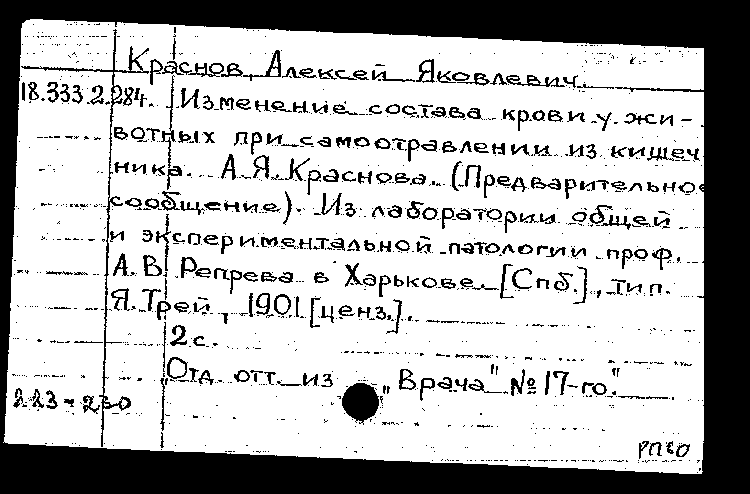 Краснов, Алексей Яковлевич.
18.333.2.284. Изменение состава крови у жи-
вотных при самоотравлении из кишеч
ника. А.Я.Краснова. (Предварительное
сообщение). Из лаборатории общей
и экспериментальной патологии проф.
А.В. Репрева в Харькове. [Спб.], тип.
Я.Трей, 1901 [ценз.].
2 с.
„Отд. отт. из „Врача" №17-го."
223-230